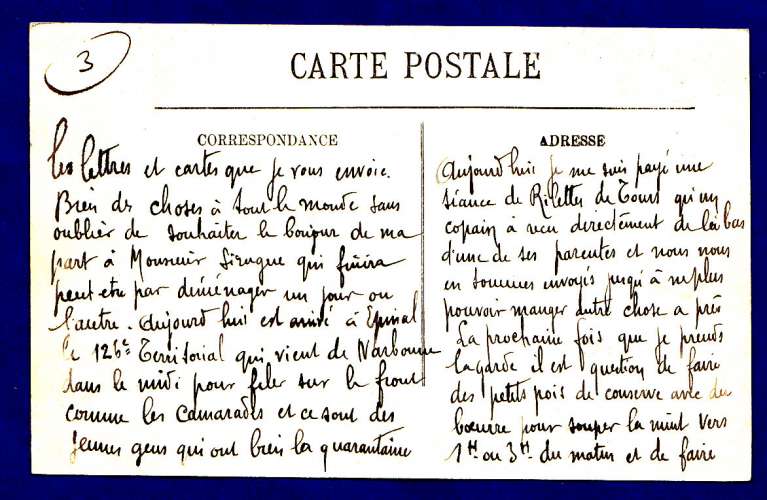 3
CARTE POSTALE
CORRESPONDANCE
les lettres et cartes que je vous envoie.
Bien des choses à tout le monde sans
oublier de souhaiter le bonjour de ma
part à Monsieur qui finira
peut etre par déménager un jour ou
l'autre. Aujourd hui est arrivé à Epinal
le 126e Territorial qui vient de Narbonne
dans le midi pour filer sur le front
comme les Camarades et ce sont des
jeunes gens qui ont bien la quarantaine
ADRESSE
Aujourd hui je me suis payé une
séance de Rillettes de Tours qu'un
copain à recu directement de la bas
d'une de ses parentes et nous nous
en sommes envoyés jusqu'à ne plus
pouvoir manger autre chose a près
La prochaine fois que je prends
la garde il est question de faire
des petits pois de conserve avec du
beurre pour souper la nuit vers
1H ou 3H du matin et de faire